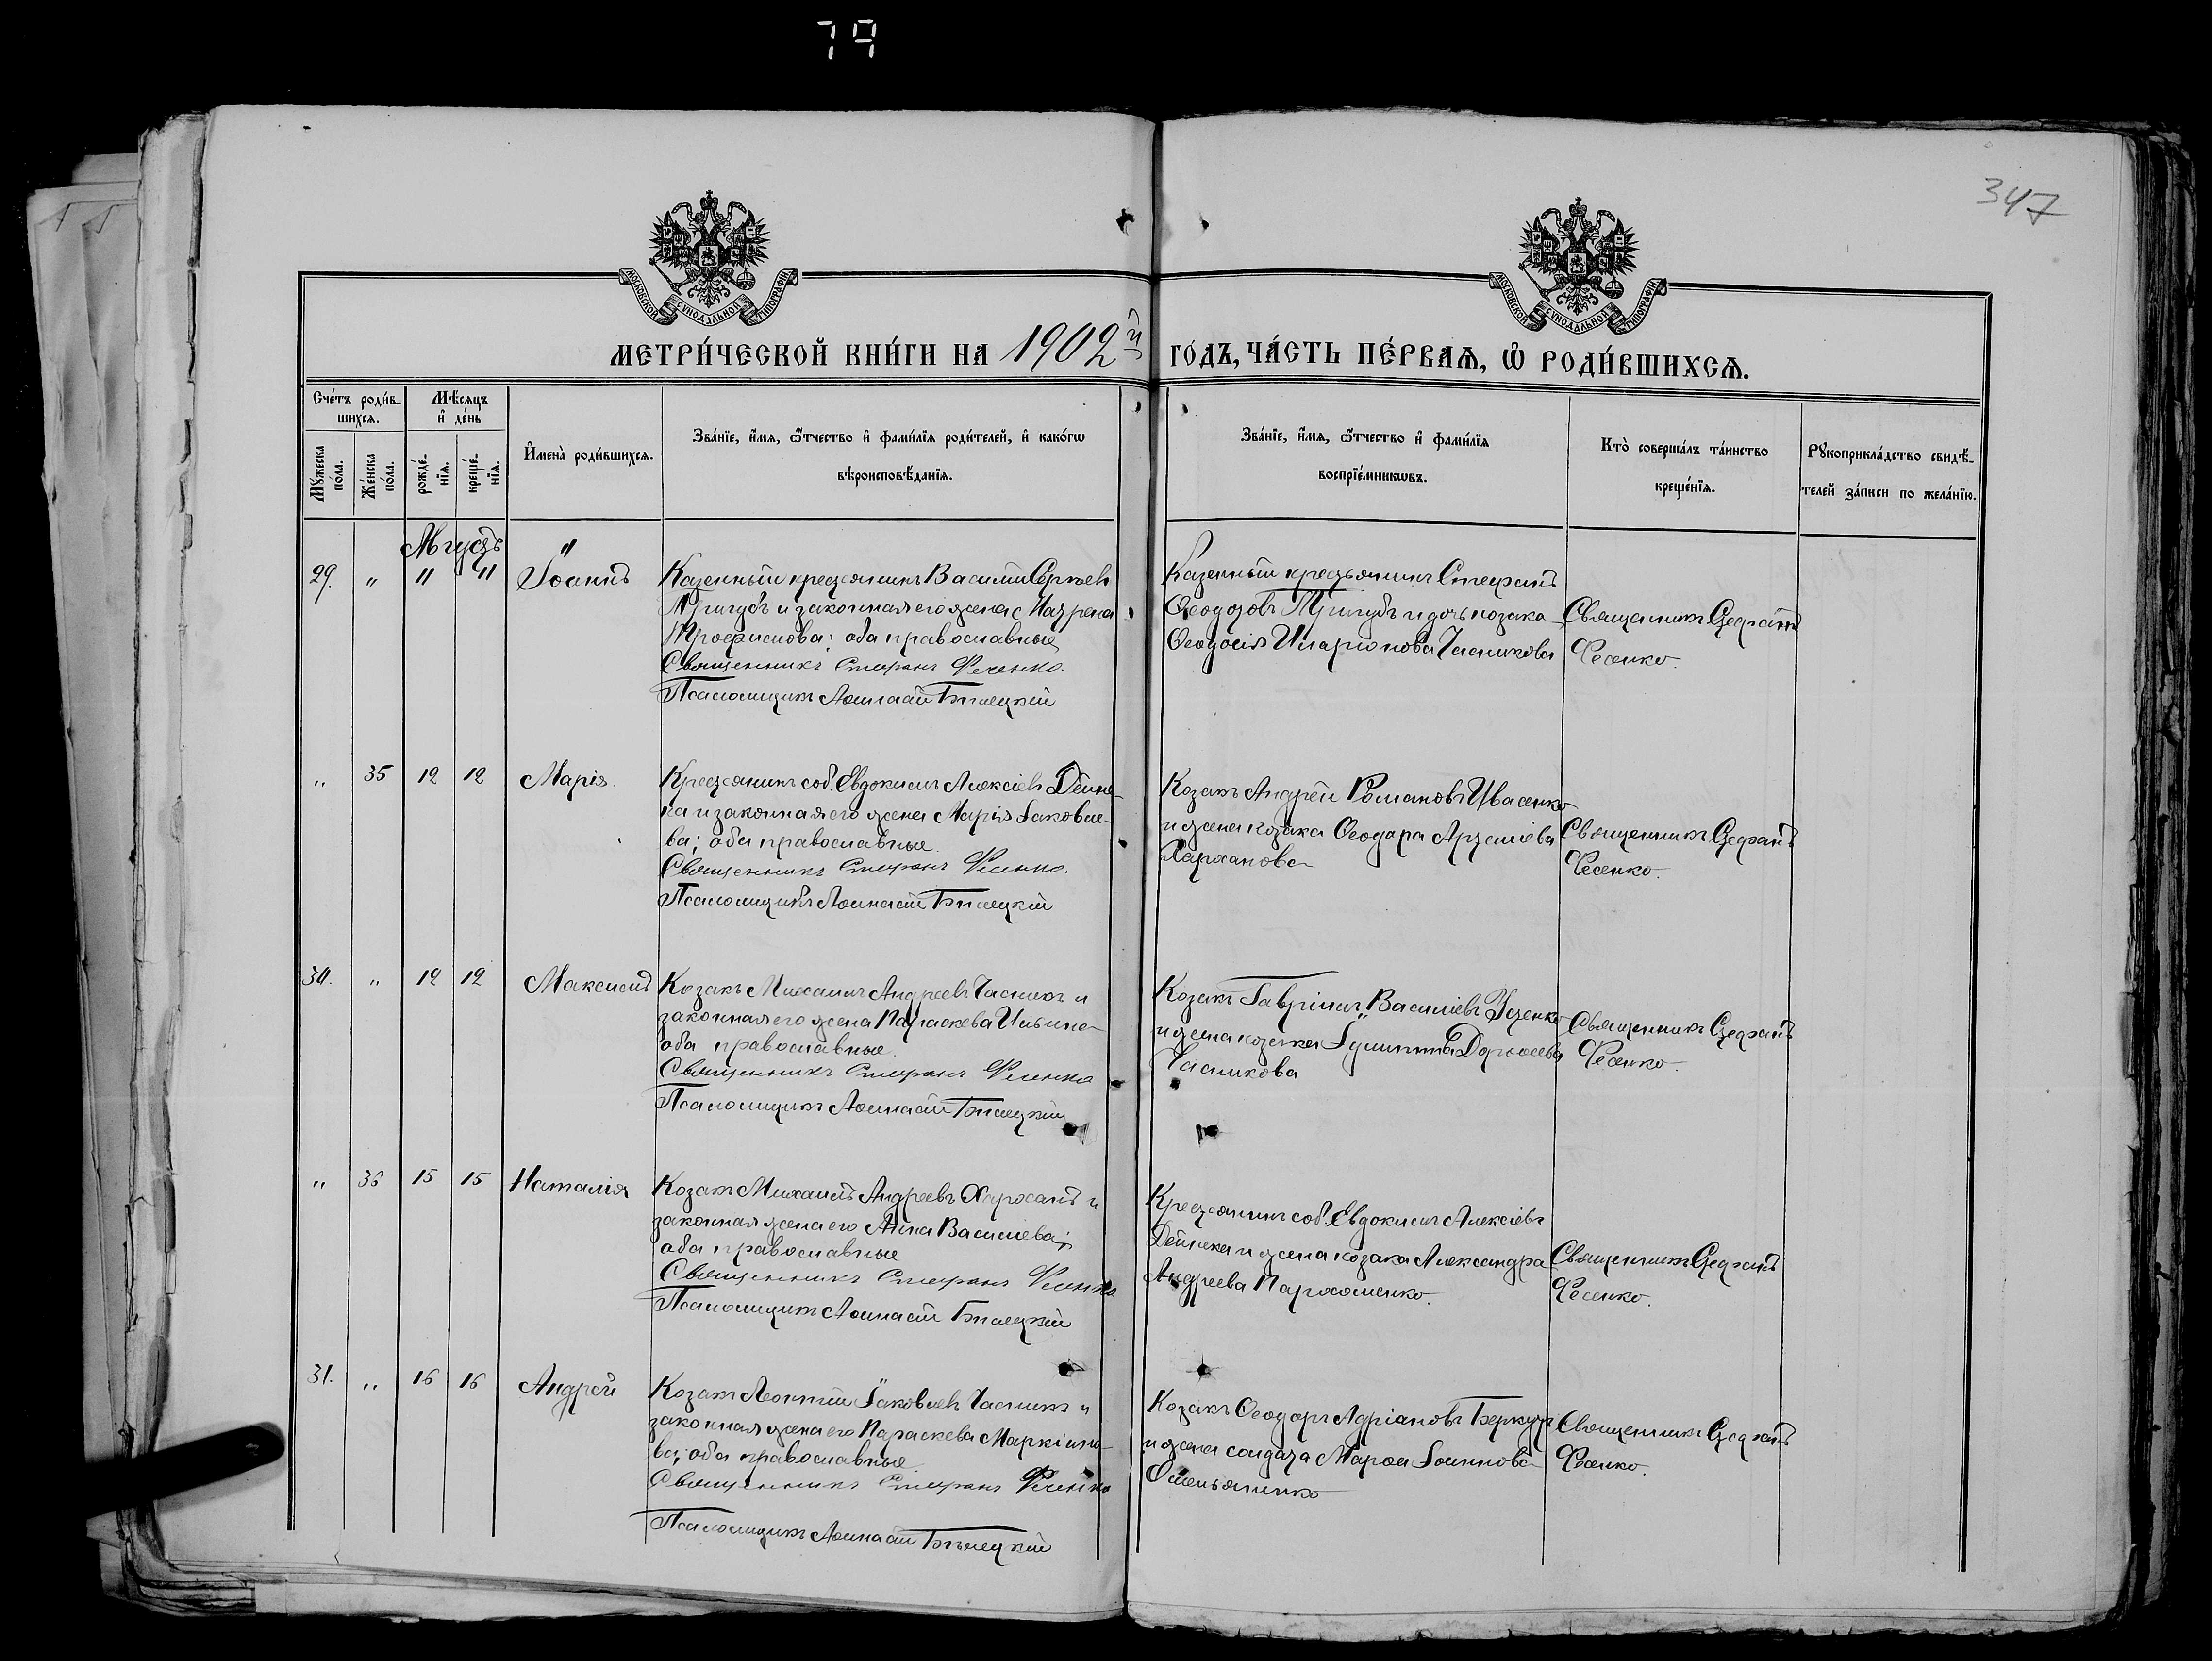 79
347
МОСКОВСКОЙ СѴНОДАЛЬНОЙ ТИПОГРАФІИ
МОСКОВСКОЙ СѴНОДАЛЬНОЙ ТИПОГРАФІИ
МЕТРИ́ЧЕСКОЙ КНИ́ГИ НА 1902й ГО́ДЪ, ЧА́СТЬ ПЕ́РВАѦ, Ѡ҆ РОДИ́ВШИХСѦ.
Сче́тъ роди́в-
шихсѧ.
Мѣ́сѧцъ
и҆ де́нь
Мꙋ́жеска
по́ла.
Же́нска
по́ла.
рожде́-
нїѧ.
креще́-
нїѧ.
И҆мена̀ роди́вшихсѧ.
Зва́нїе, и҆́мѧ, ѻ҆́тчество и҆ фами́лїѧ роди́телей, и҆ како́гѡ
вѣроисповѣ́данїѧ.
Зва́нїе, и҆́мѧ, ѻ҆́тчество и҆ фами́лїѧ
воспрїе́мникѡвъ.
Кто̀ соверша́лъ та́инство
креще́нїѧ.
Рꙋкоприкла́дство свидѣ́-
телей за́писи по жела́нїю.
Августъ
29. " 11 11 Іоаннъ
Казенный крестьянинъ Василій Сергѣевъ
Тригубъ и законная его жена
Трофимова; оба православные
Священникъ Стефанъ Фесенко.
Псаломщикъ Аѳанасій Бѣлецкій
Казенный крестьянинъ Стефанъ
Ѳеодотовъ Тригубъ и дочь козака
Ѳеодосія Иларіонова Часникова
Священникъ Стефанъ
Фесенко.
" 35 12 12 Марія.
Крестьянинъ соб. Евдокимъ Алексіевъ Дейне-
ка и законная его жена Марія Іаковле-
ва; оба православные.
Священникъ Стефанъ Фесенко.
Псаломщикъ Аѳанасій Бѣлецкій
Козакъ Андрей Романовъ Ивасенко
и жена козака Ѳеодора Артеміева
Священникъ Стефанъ
Фесенко.
30. " 12 12 Максимъ
Козакъ Михаилъ Андреевъ Часникъ и
законная его жена Параскева Ильина
оба православные.
Священникъ Стефанъ Фесенко
Псаломщикъ Аѳанасій Бѣлецкій
Козакъ Гавріилъ Василіевъ Усенко
и жена козака Іулиттa
Часникова
Священникъ Стефанъ
Фесенко.
" 36 15 15 Наталія
Козакъ Михаилъ Андреевъ Пархоменко и
законная жена его Анна Василіева;
оба православные
Священникъ Стефанъ Фесенко
Псаломщикъ Аѳанасій Бѣлецкій
Крестьянинъ соб. Евдокимъ Алексіевъ
Дейнека и жена козака Александра
Андреева Пархоменко.
Священникъ Стефанъ
Фесенко.
31. " 16 16 Андрей
Козакъ Леонтій Іаковлевъ Часникъ и
законная жена его Параскева Маркіано-
ва; оба православные
Священникъ Стефанъ Фесенко
Псаломщикъ Аѳанасій Бѣлецкій
Козакъ Ѳеодоръ Адріановъ Беркутъ
и жена солдата Марѳа Іоаннова
Омельяненко
Священникъ Стефанъ
Фесенко.